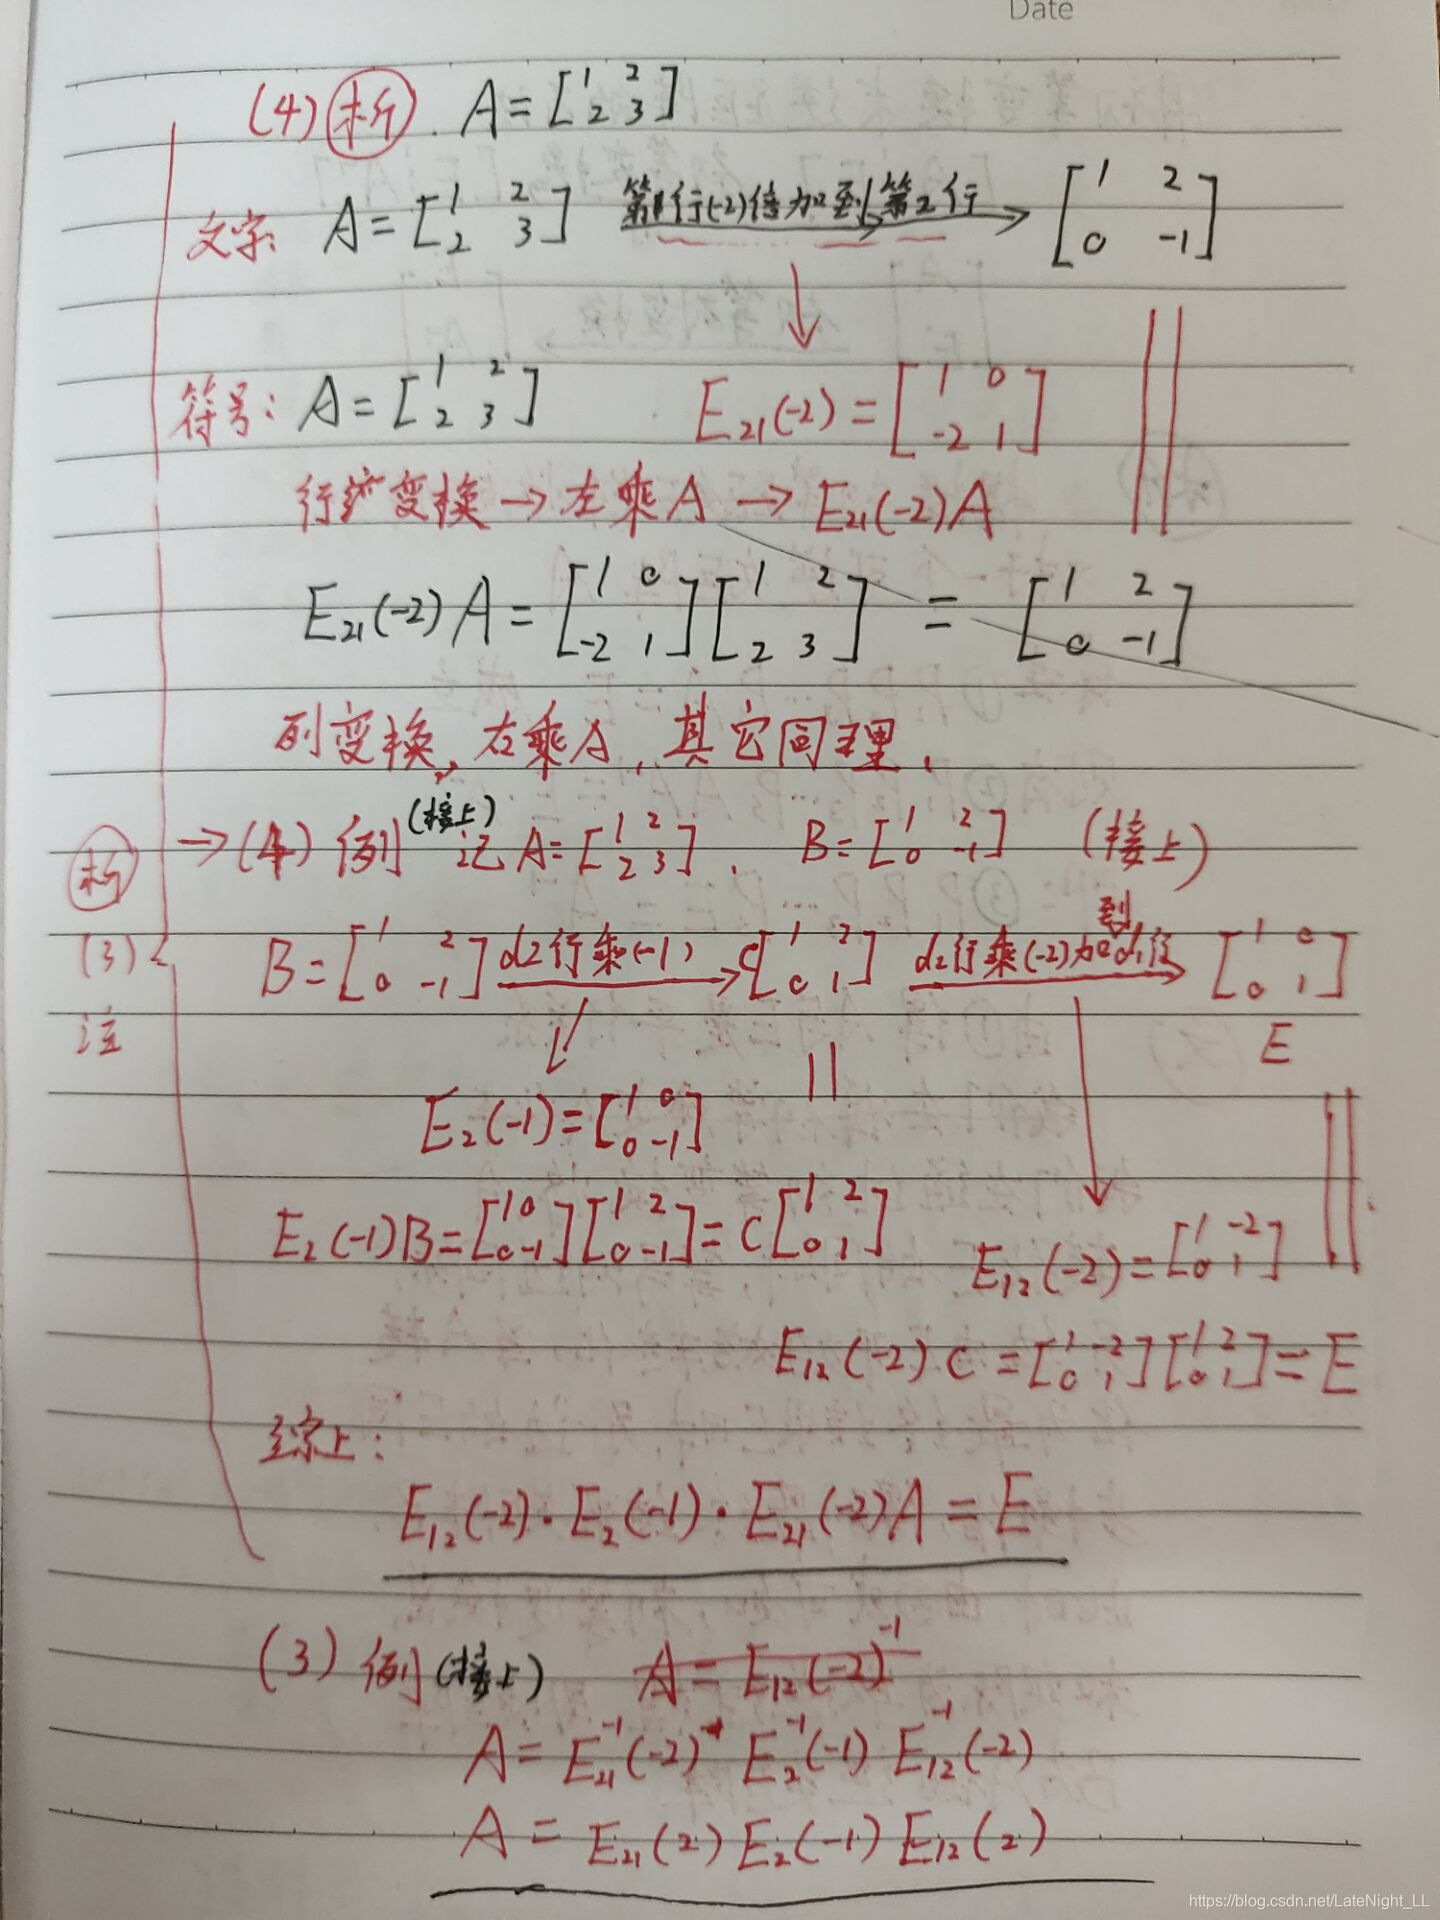 Date
(4) 析. A = [1 2 2 3]
文字: A = [1 2 2 3] 第1行(-2)倍加到第2行 [1 2 0 -1]
符号: A = [1 2 2 3] E21(-2) = [1 0 -2 1]
变换 → 左乘A → E21(-2)A
E21(-2) A = [1 0 -2 1] [1 2 2 3] = [1 2 0 -1]
列变换, 右乘A, 其它同理.
→ (4) 例 (接上) 记 A = [1 2 2 3]. B = [1 2 0 -1] (接上)
析 (3) 注
B = [1 2 0 -1] d2行乘(-1) C [1 2 0 1] d2行乘(-2)加到d1行 [1 0 0 1]
E
E2(-1) = [1 0 0 -1]
E2(-1)B = [1 0 0 -1] [1 2 0 -1] = C [1 2 0 1]
E12(-2) = [1 -2 0 1]
E12(-2) C = [1 -2 0 1] [1 2 0 1] = E
综上:
E12(-2) · E2(-1) · E21(-2)A = E
(3) 例 (接上) A = E12(-2)^-1
A = E21^-1(-2) E2^-1(-1) E12^-1(-2)
A = E21(2) E2(-1) E12(2)
https://blog.csdn.net/LateNight_LL